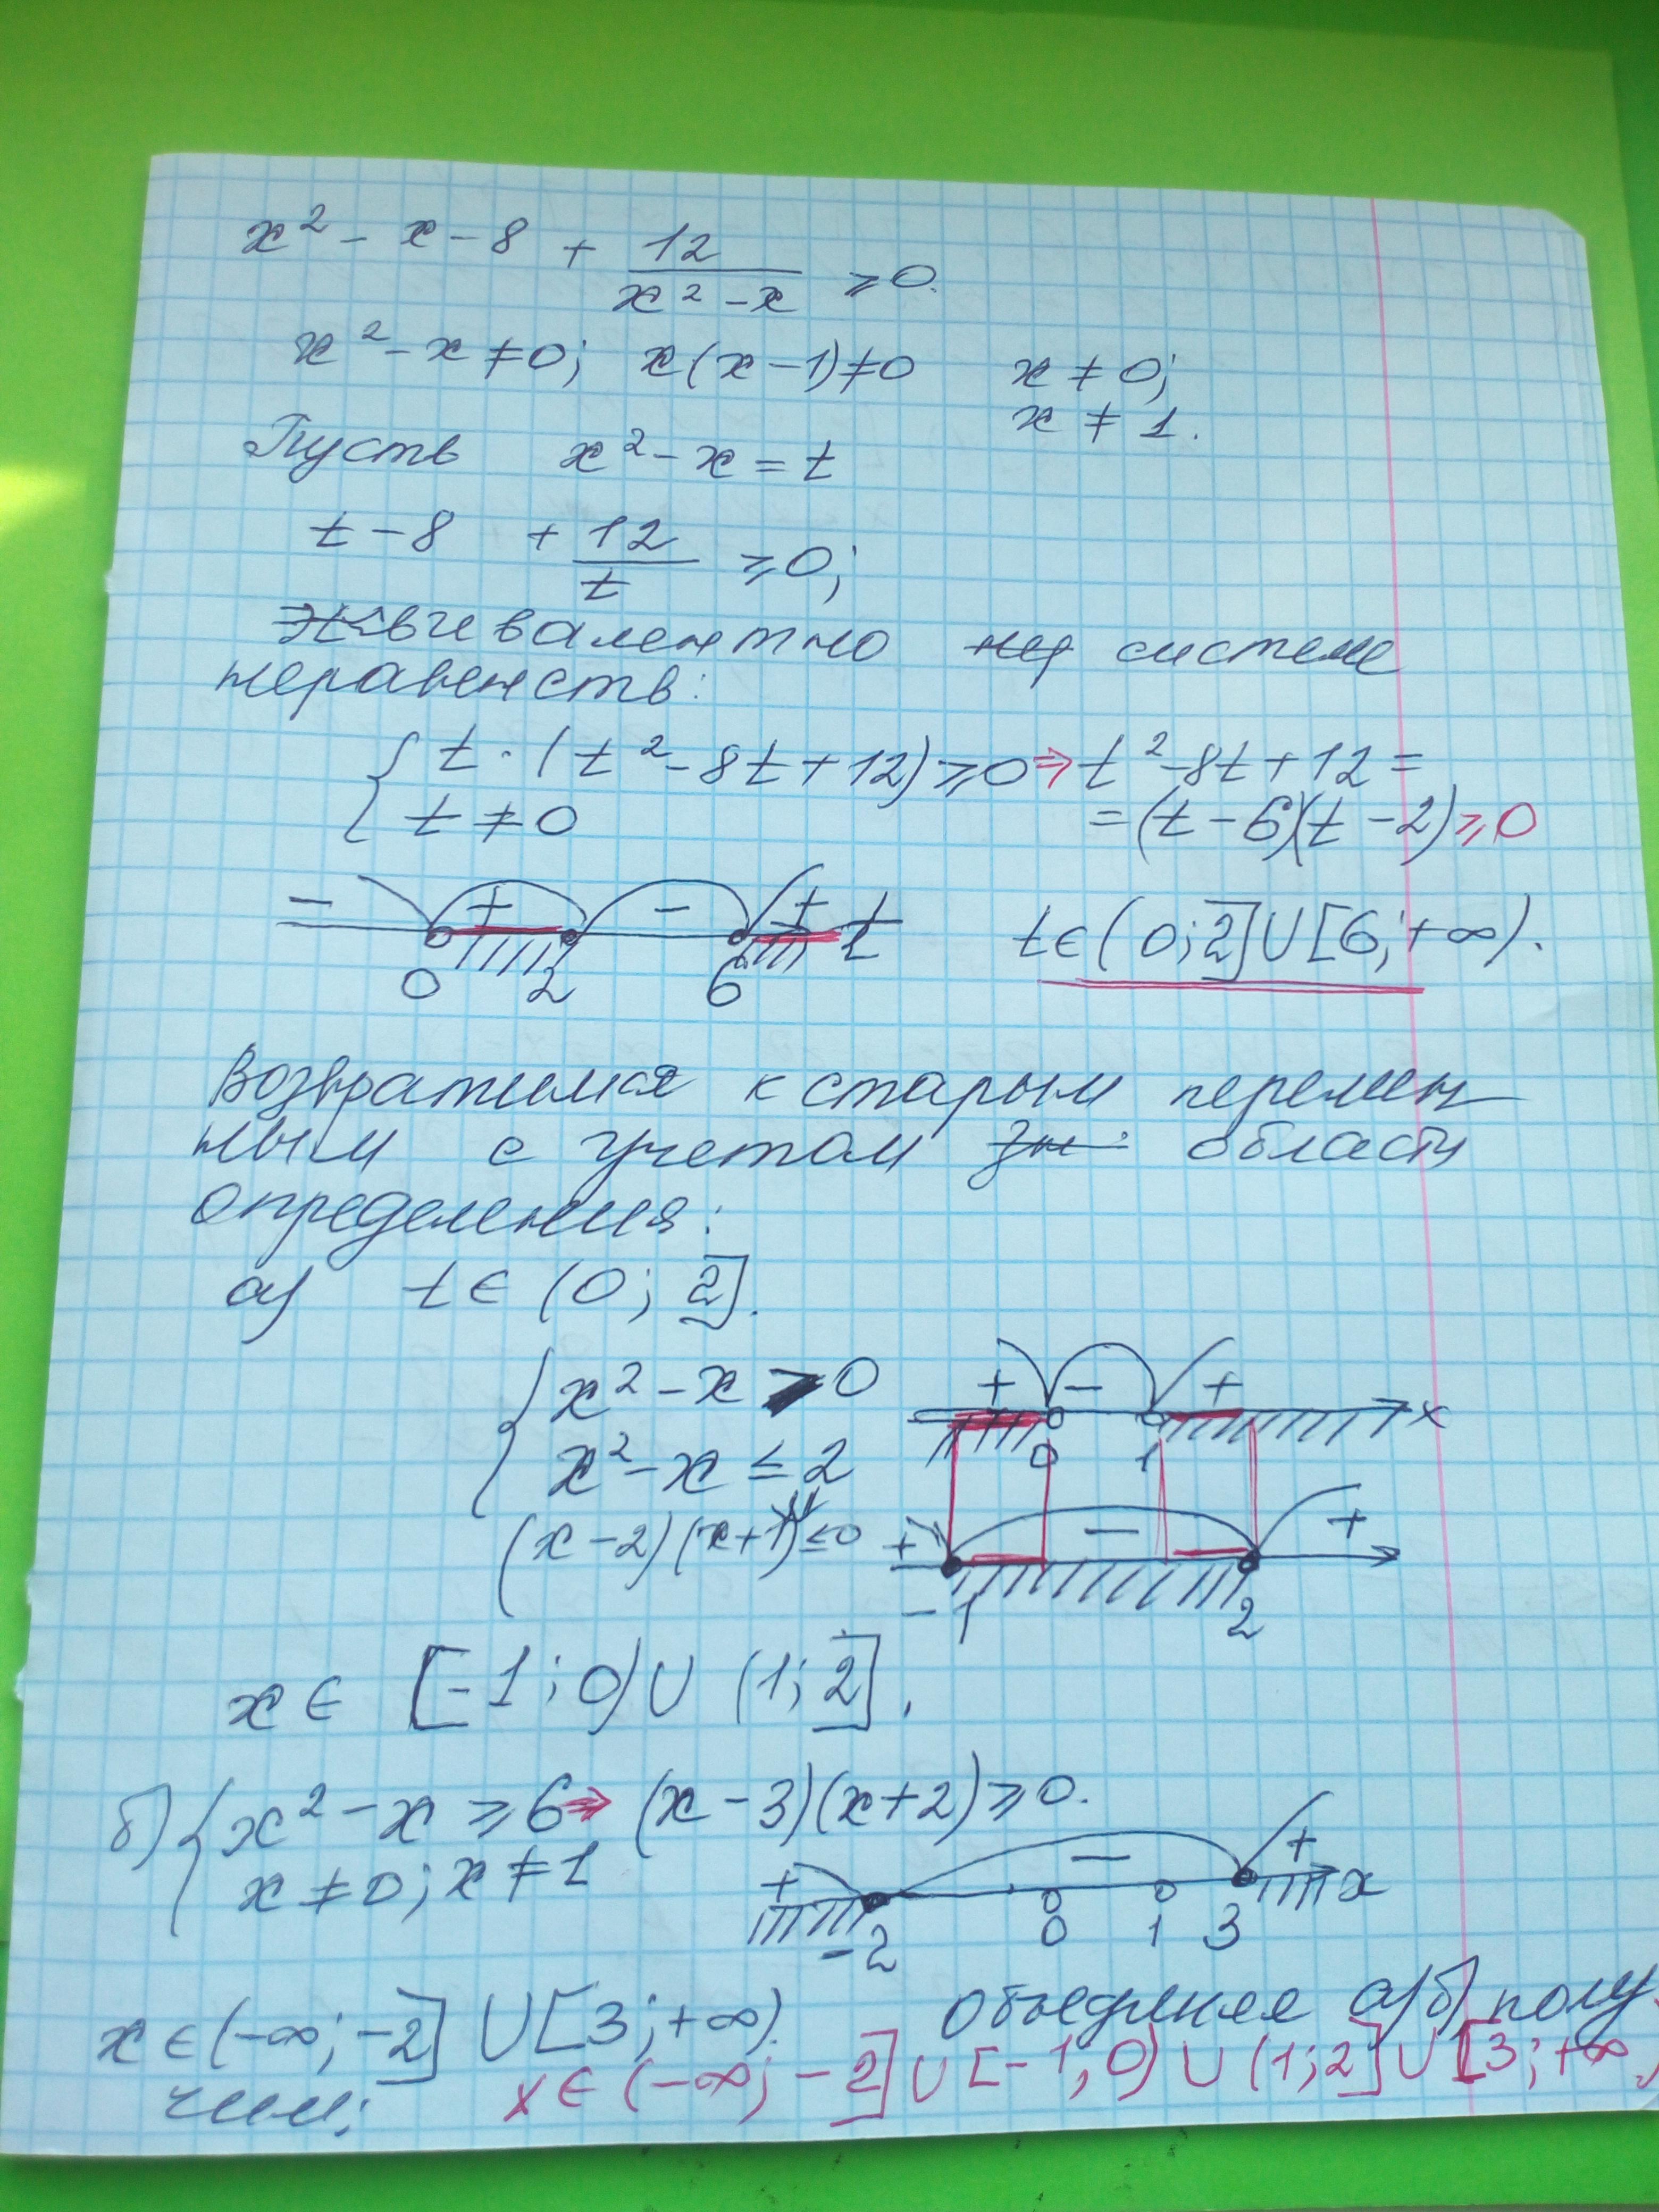 x² - x - 8 + 12/(x² - x) ⩾ 0.
x² - x ≠ 0; x(x - 1) ≠ 0 x ≠ 0;
x ≠ 1.
Пусть x² - x = t
t - 8 + 12/t ⩾ 0;
системе
неравенств:
{ t · (t² - 8t + 12) ⩾ 0 ⇒ t² - 8t + 12 =
t ≠ 0 = (t - 6)(t - 2) ⩾ 0
- + - + t
0 2 6
t ∈ (0; 2] ∪ [6; +∞).
Возвратимся к старым перемен
ным с учетом области
определения:
а) t ∈ (0; 2].
{ x² - x > 0
x² - x ≤ 2
(x - 2)(x + 1) ≤ 0
+ - + x
0 1
+ - +
-1 2
x ∈ [-1; 0) ∪ (1; 2].
б) { x² - x ⩾ 6 ⇒ (x - 3)(x + 2) ⩾ 0.
x ≠ 0; x ≠ 1
+ - + x
-2 0 1 3
x ∈ (-∞; -2] ∪ [3; +∞). Объединяя а) б) полу
чим: x ∈ (-∞; -2] ∪ [-1; 0) ∪ (1; 2] ∪ [3; +∞)